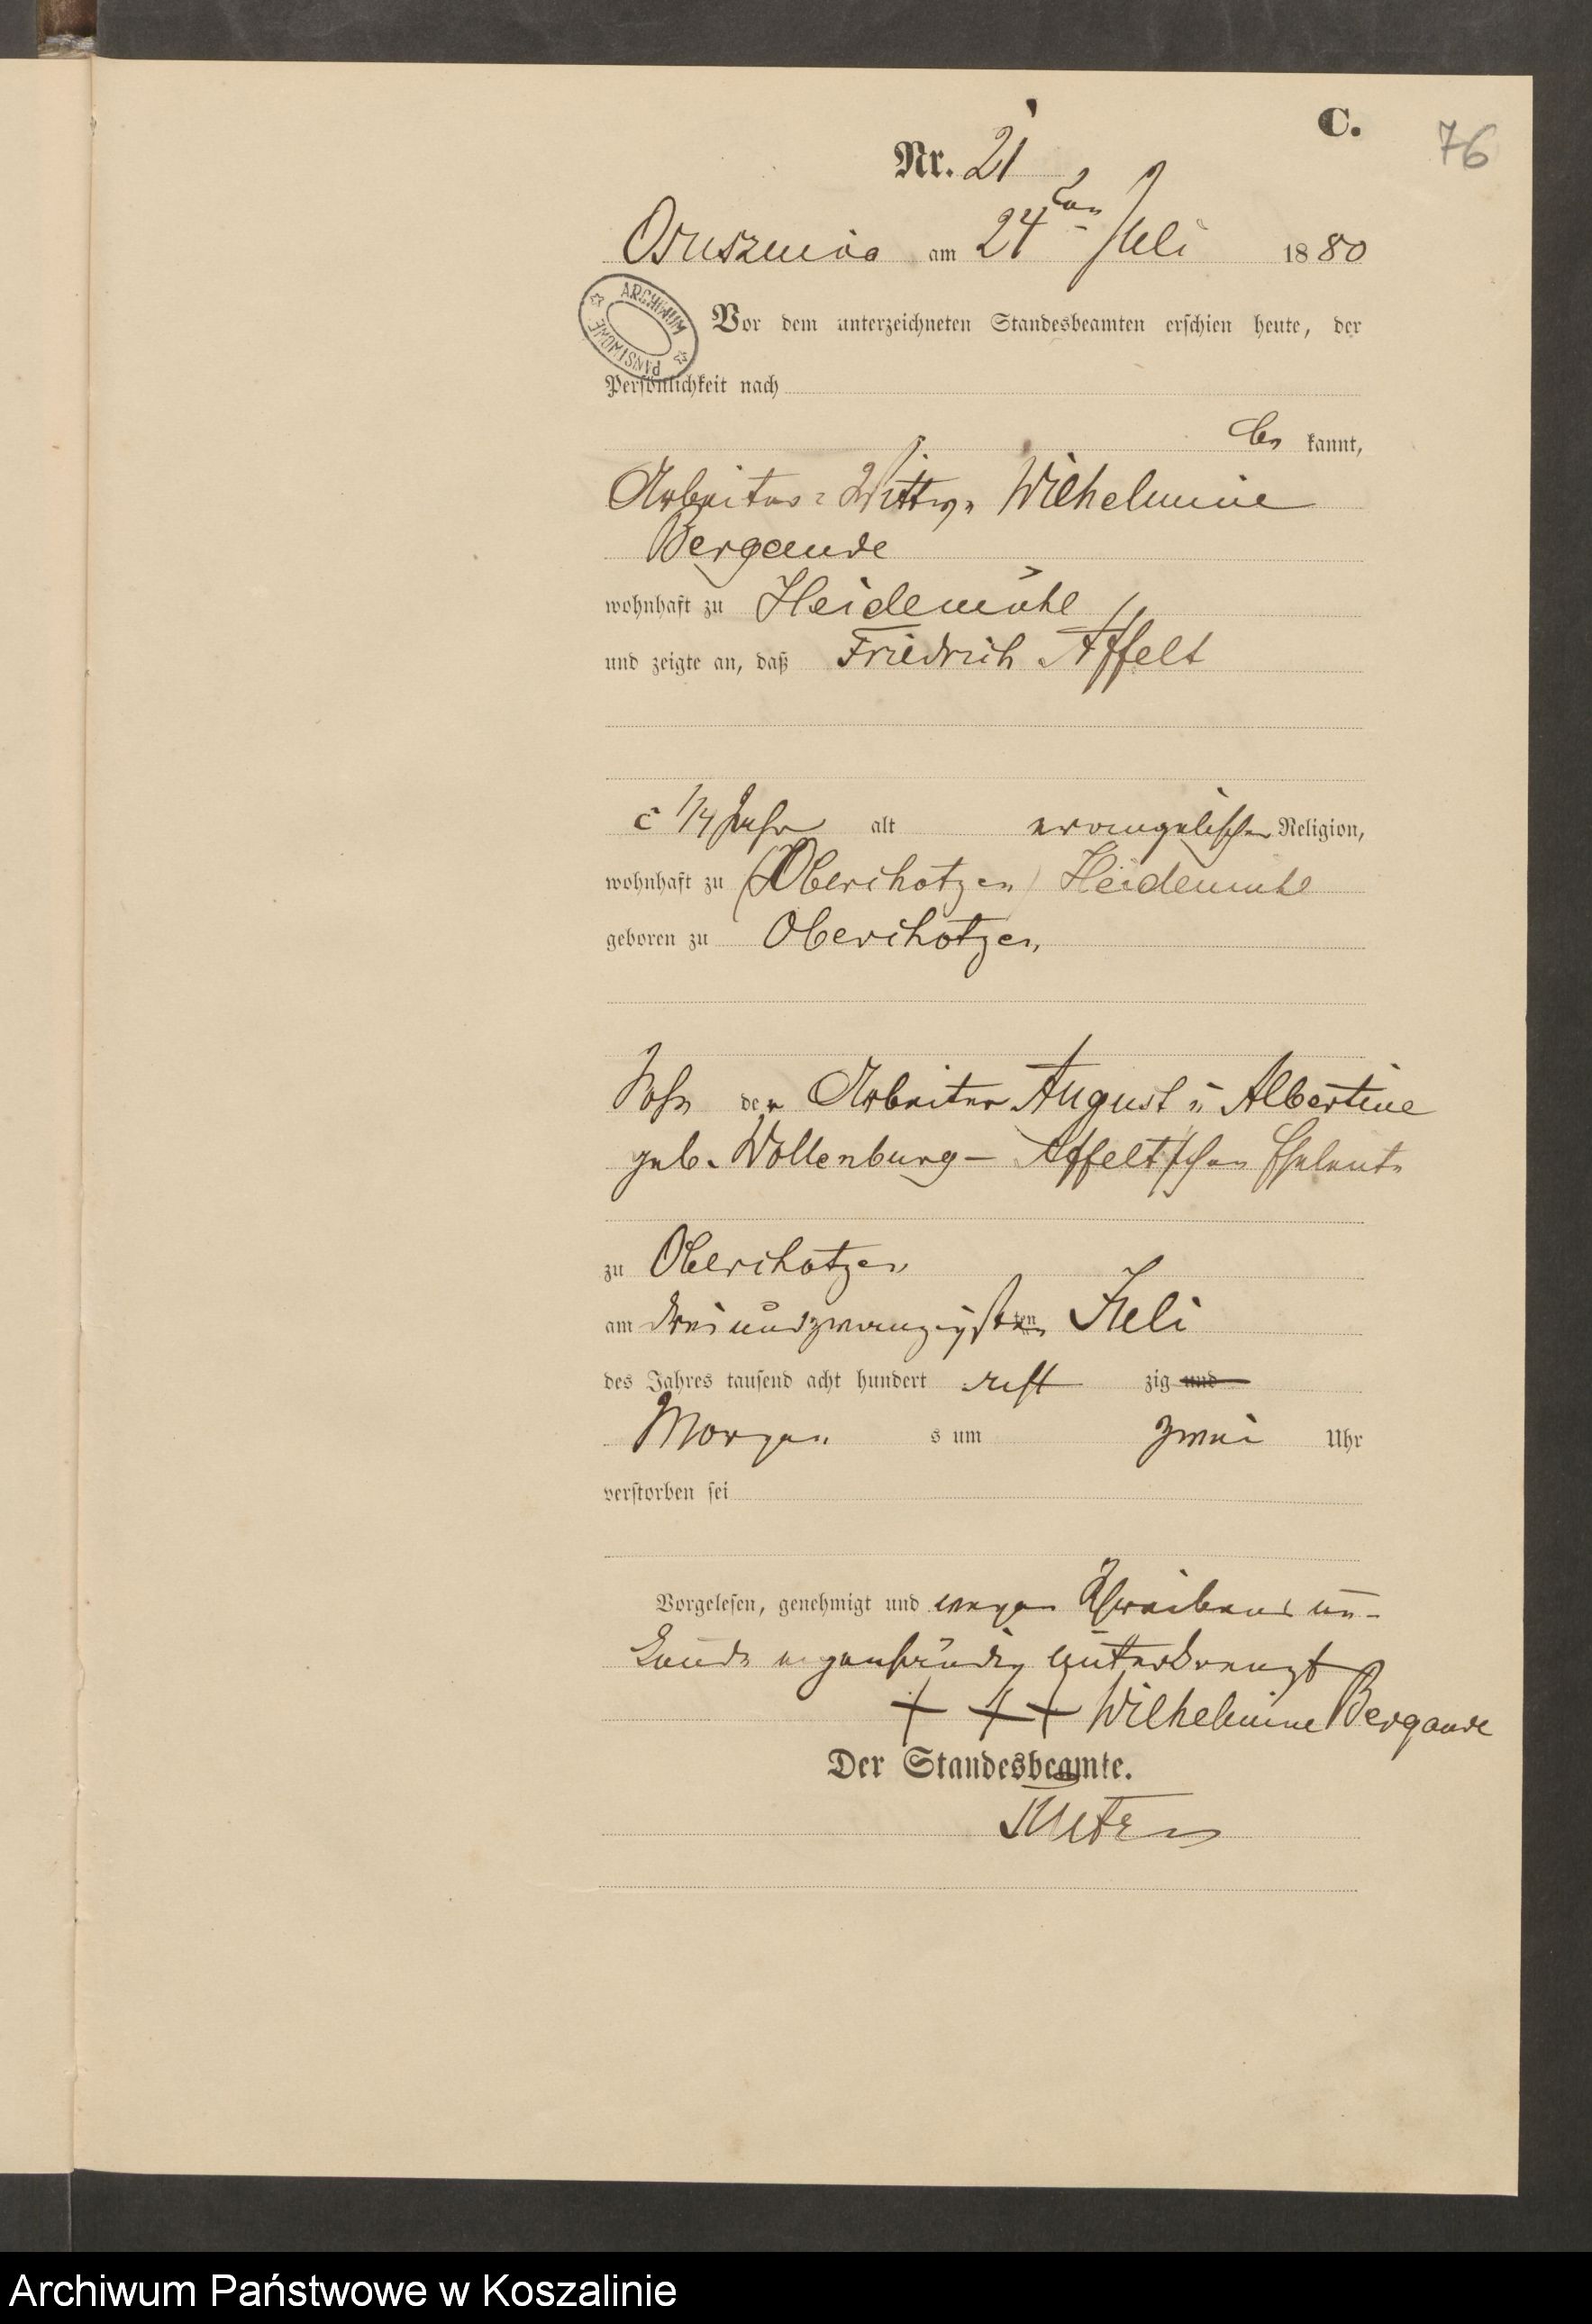 C.
76
Nr. 21
Osuszniza am 24ten Juli 1880
ARCHIWUM PAŃSTWOWE
Vor dem unterzeichneten Standesbeamten erschien heute, der
Persönlichkeit nach
be kannt,
Arbeiter-Wittwe Wilhelmine
Bergande
wohnhaft zu Heidemühl
und zeigte an, daß Friedrich Affelt
c 1/4 Jahr alt evangelischer Religion,
wohnhaft zu (Oberchotzen) Heidemühl
geboren zu Oberchotzen
Sohn der Arbeiter August u Albertine
geb. Wollenburg - Affelt'schen Eheleute
zu Oberchotzen
am dreiundzwanzigsten Juli
des Jahres tausend acht hundert acht zig und
Morgen s um zwei Uhr
verstorben sei
Vorgelesen, genehmigt und wegen Schreibens un-
kunde eigenhändig unterkreuzt
+ + + Wilhelmine Bergande
Der Standesbeamte.
Archiwum Państwowe w Koszalinie